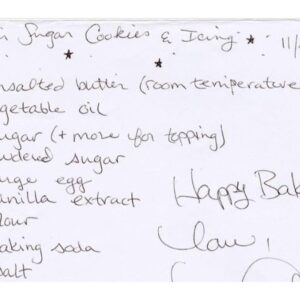 n Sugar Cookies & Icing 11/
nsalted butter (room temperature
egetable oil
ugar (+ more for topping)
owdered sugar
arge egg
anilla extract
lour
aking soda
salt
Happy Bak